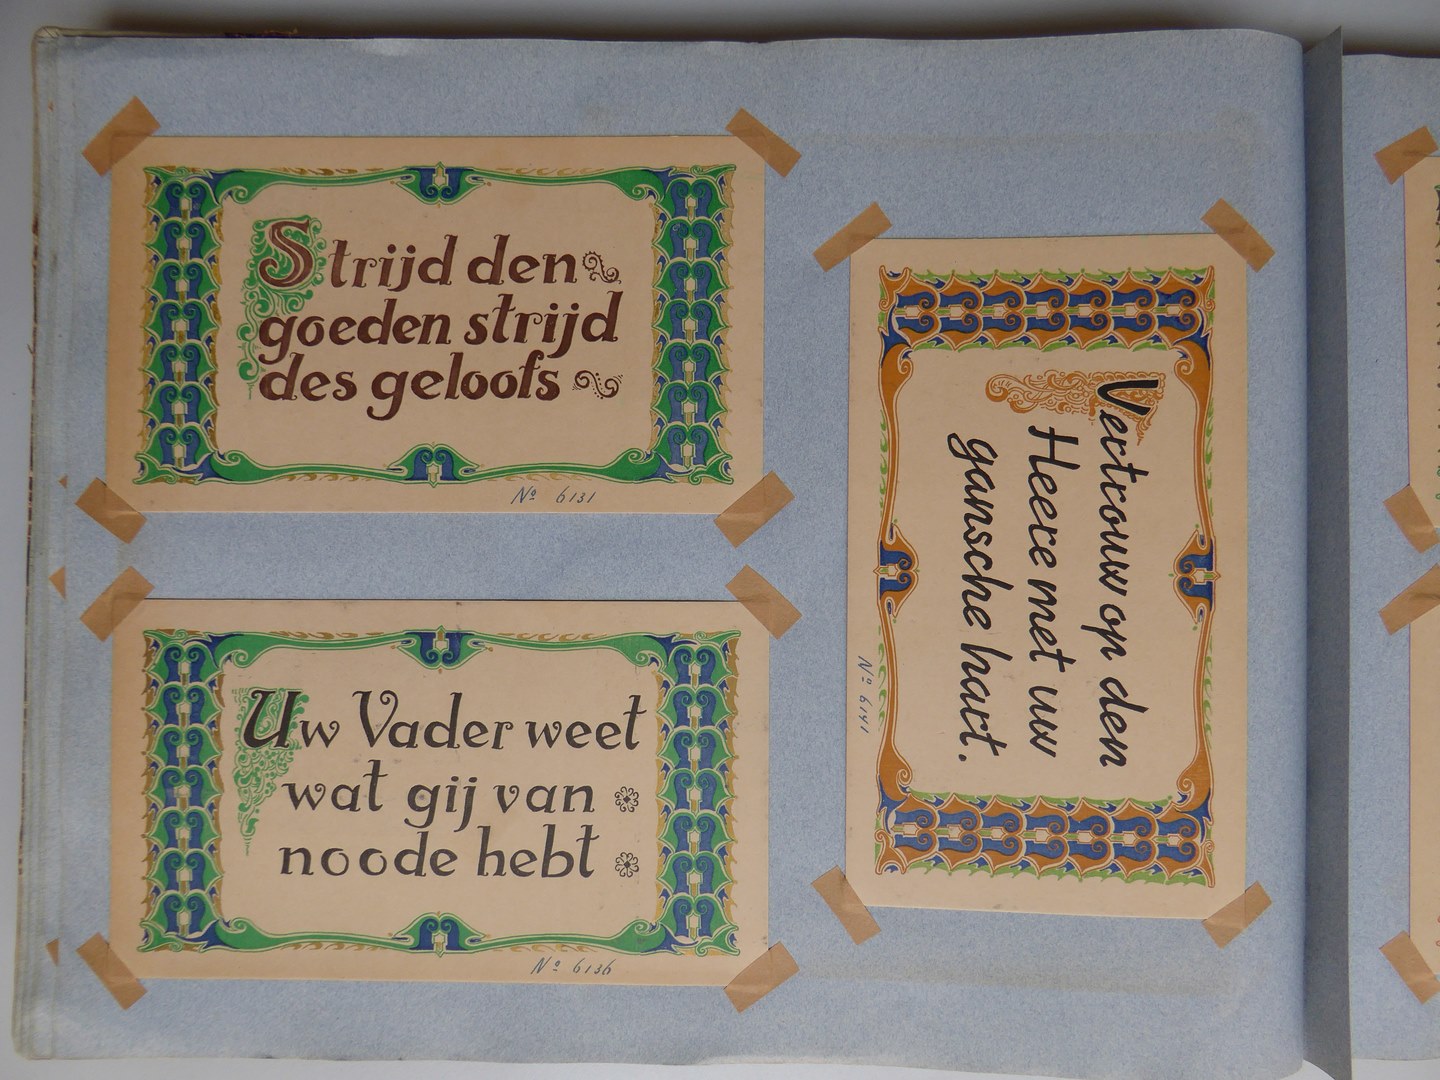 Strijd den
goeden strijd
des geloofs
Nº 6131
Uw Vader weet
wat gij van
noode hebt
Nº 6136
Vertrouw op den
Heere met uw
gansche hart.
Nº 6141